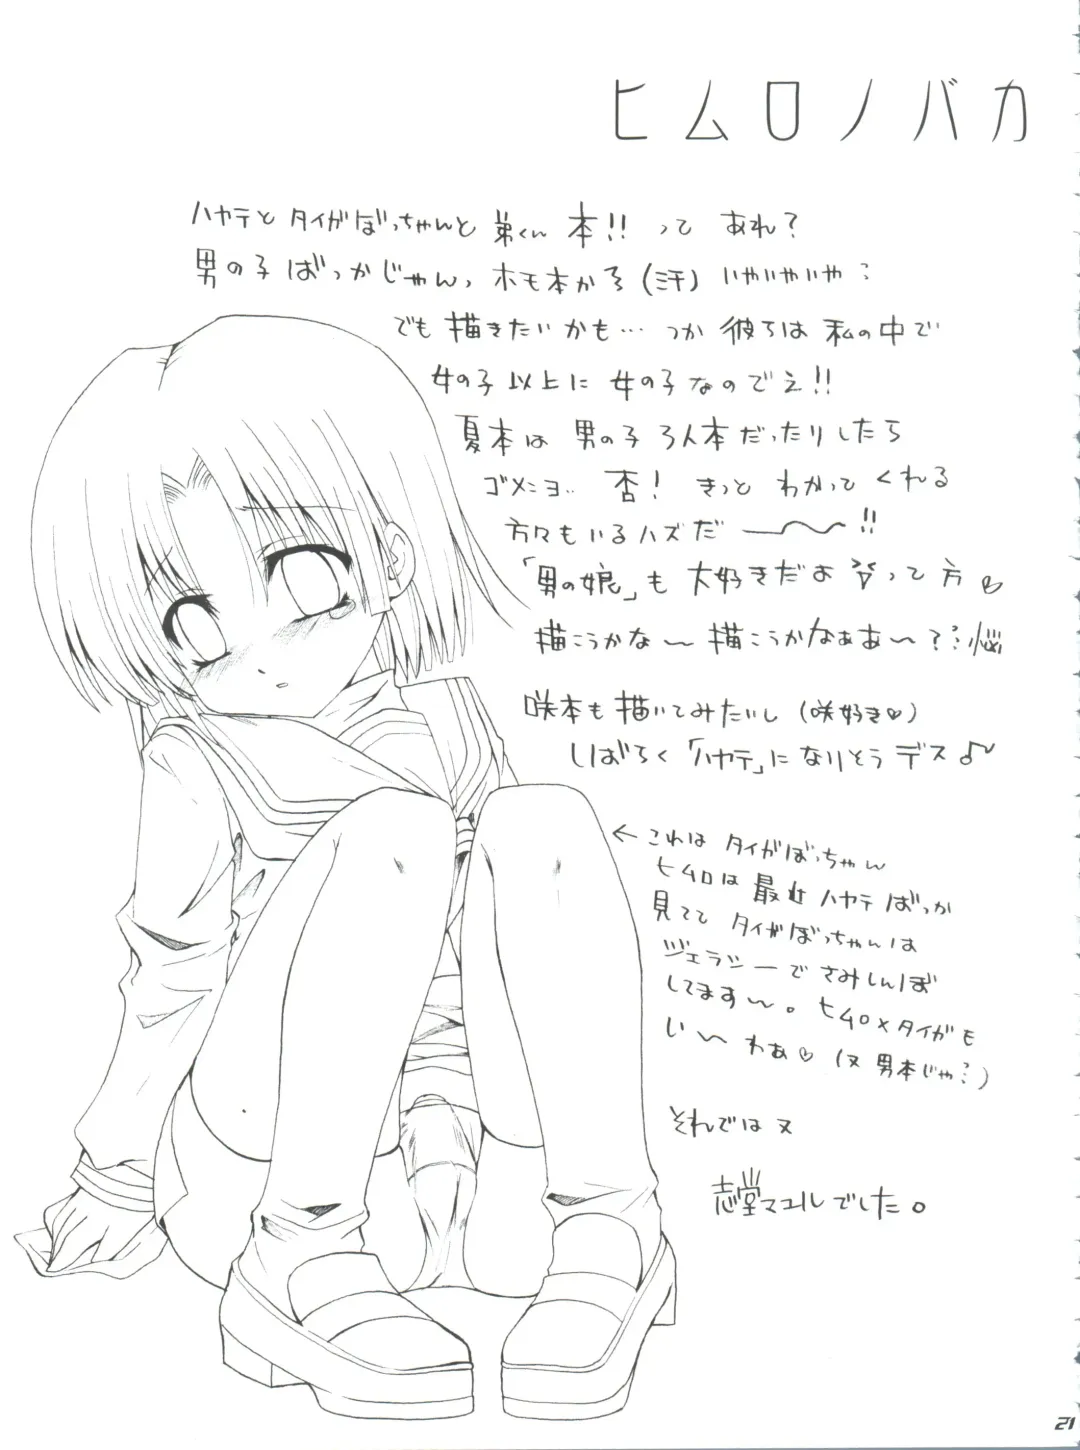 ヒムロノバカ
ハヤテと タイガぼっちゃんと 弟くん 本!! って あれ?
男の子 ばっかじゃんっ ホモ本かろ (汗) いやいやいや
でも 描きたい かも… つか 彼らは 私の中で
女の子 以上に 女の子 なのでえ!!
夏本は 男の子 3人本 だったりしたら
ゴメ~ヨ 否! きっと わかって くれる
方々も いる ハズだ ――~~!!
「男の娘」も 大好きだよ って 方 ♡
描こうかな ~ 描こうかなぁあ~? 悩
咲本も 描いてみたいし (咲好き♡)
しばらく「ハヤテ」に なりそう デス ♪
← これは タイガぼっちゃん
ヒムロは 最近 ハヤテ ばっか
見てて タイガぼっちゃんは
ジェラシーで さみしんぼ
してます~。 ヒムロ×タイガも
い~ わぁ♡ (又 男本じゃ)
それでは 又
志堂マユル でした。
21